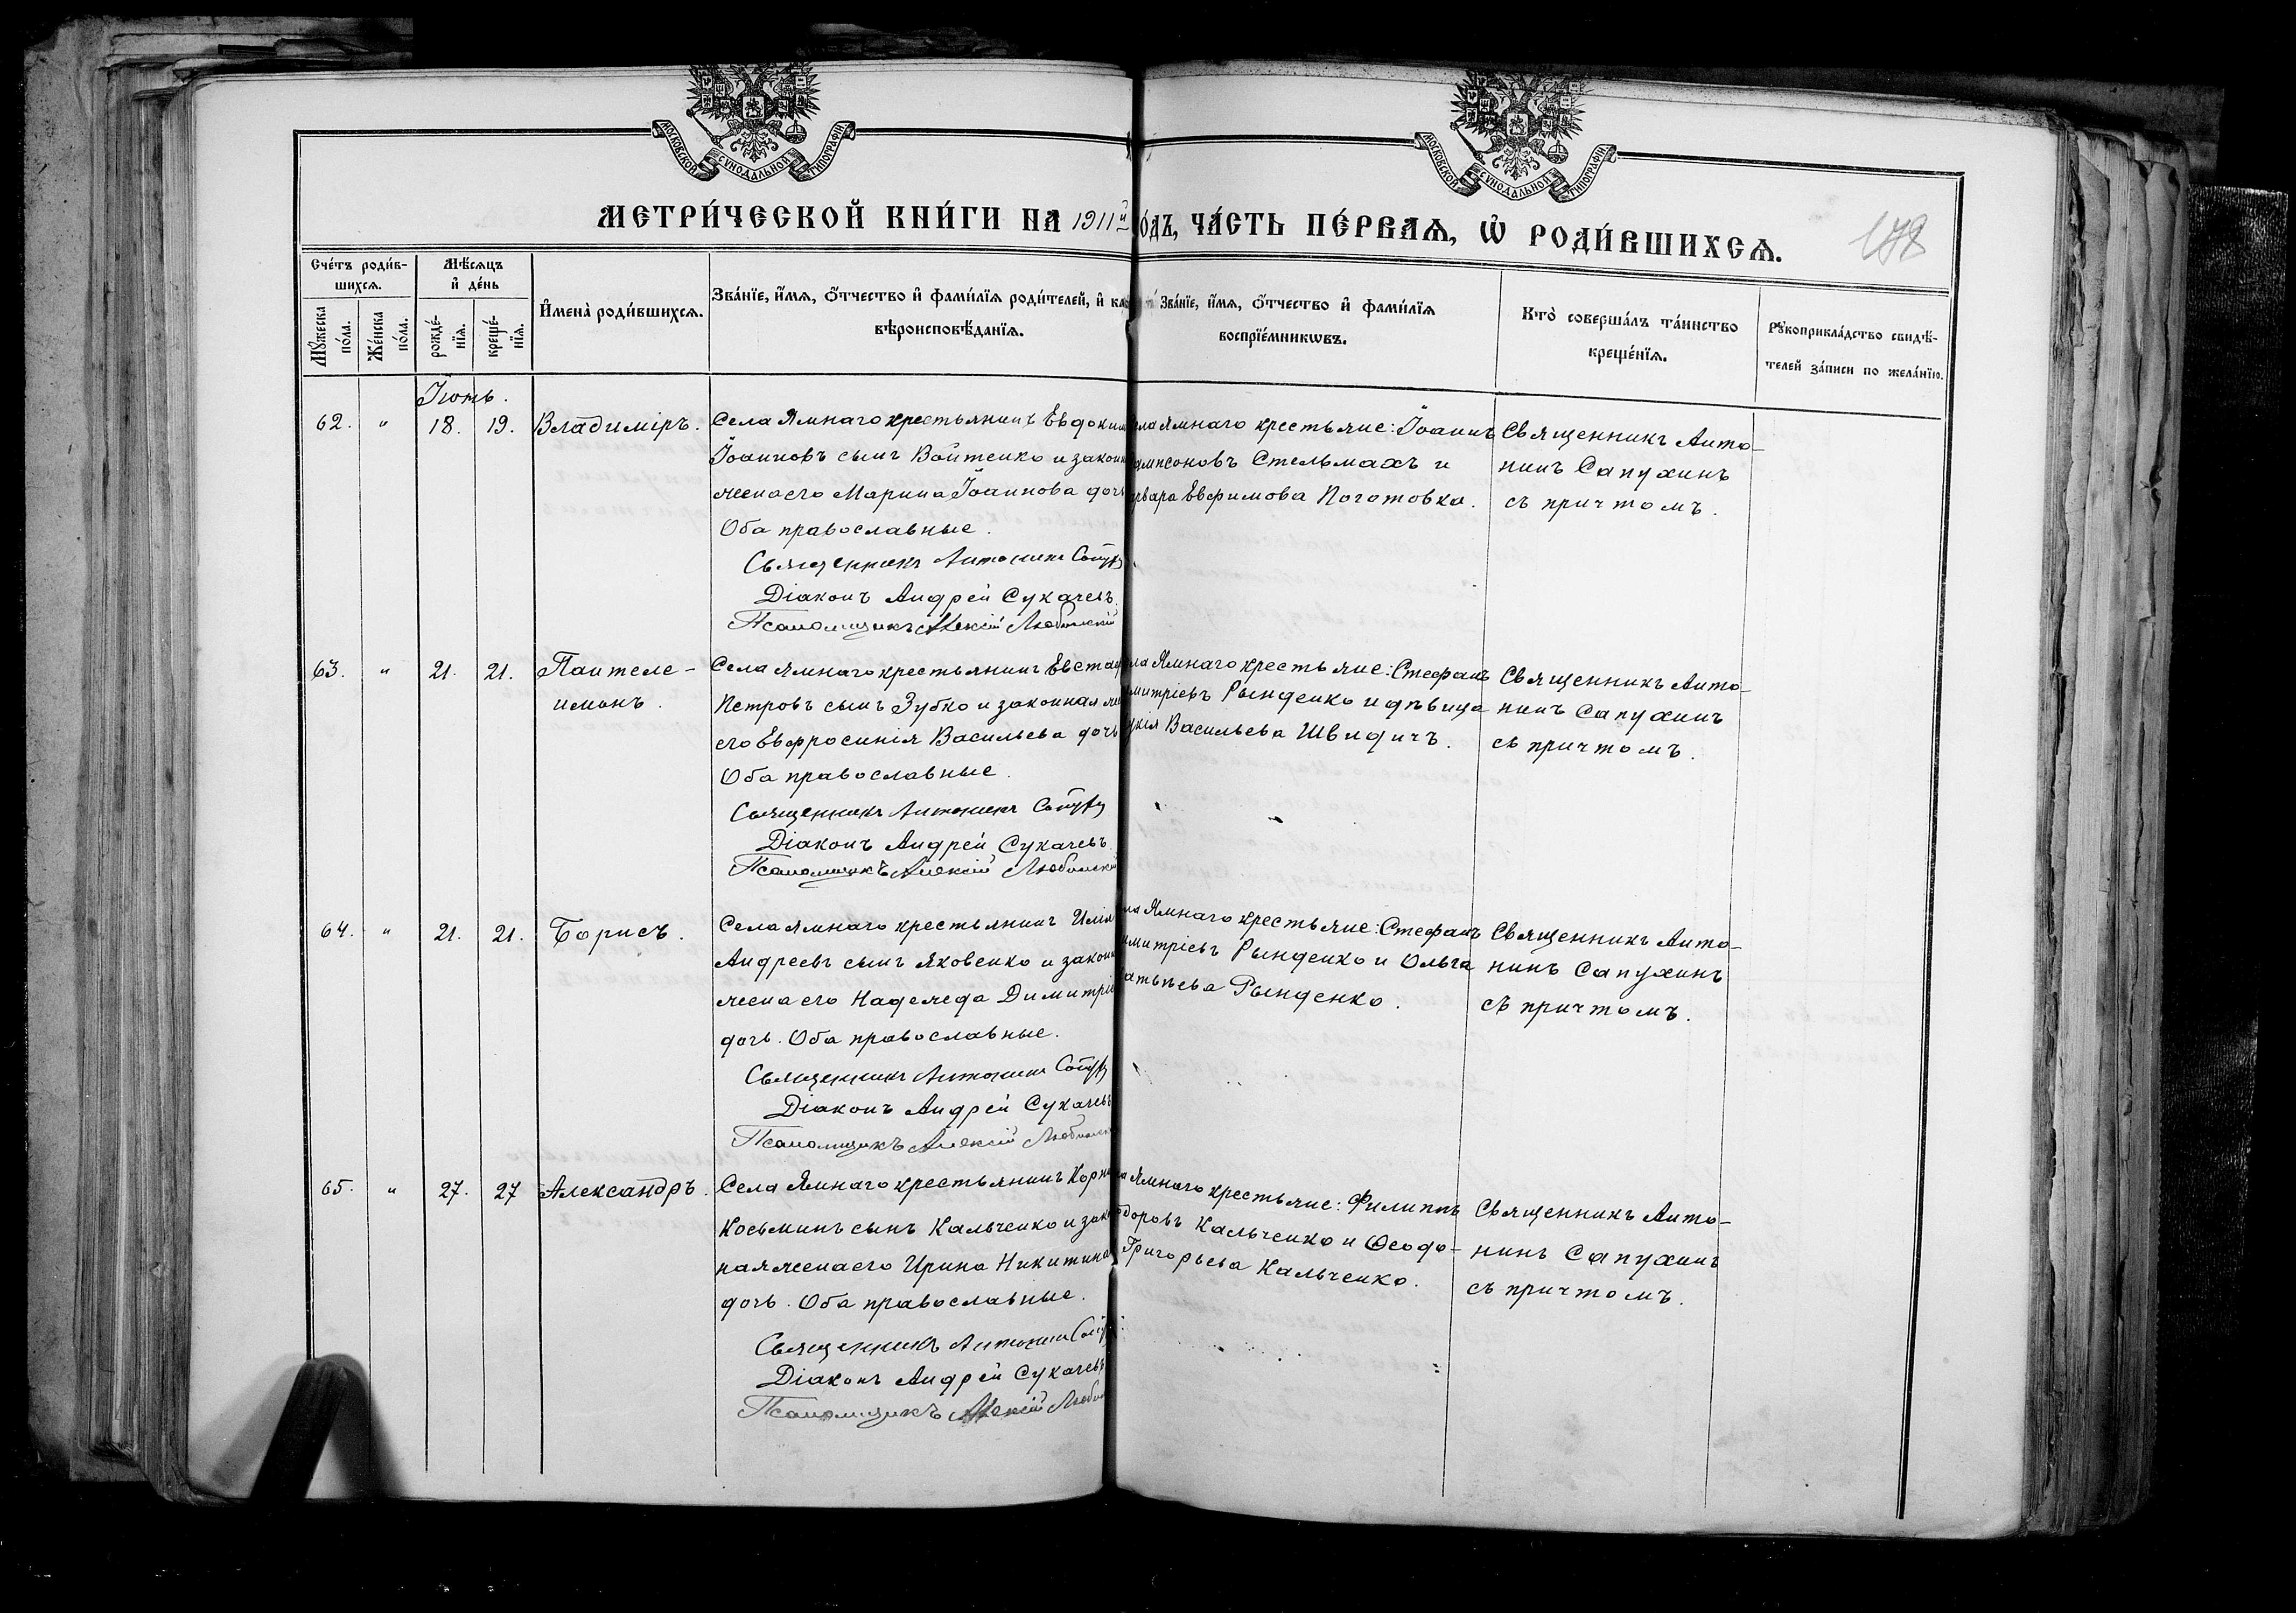 МОСКОВСКОЙ СѴНОДАЛЬНОЙ ТИПОГРАФІИ.
МОСКОВСКОЙ СѴНОДАЛЬНОЙ ТИПОГРАФІИ.
МЕТРИ́ЧЕСКОЙ КНИ́ГИ НА 1911й
О́ДЪ, ЧА́СТЬ ПЕ́РВАѦ, Ѡ҆ РОДИ́ВШИХСѦ.
178
Сче́тъ роди́в-
шихсѧ.
Мꙋ́жеска
по́ла.
Же́нска
по́ла.
Мѣ́сѧцъ
и҆ де́нь
рожде́-
нїѧ.
креще́-
нїѧ.
И҆мена̀ роди́вшихсѧ.
Зва́нїе, и҆́мѧ, ѻ҆́тчество и҆ фами́лїѧ роди́телей, и҆ как
вѣроисповѣ́данїѧ.
Зва́нїе, и҆́мѧ, ѻ҆́тчество и҆ фами́лїѧ
воспрїе́мникѡвъ.
Кто̀ соверша́лъ та́инство
креще́нїѧ.
Рꙋкоприкла́дство свидѣ́-
телей за́писи по жела́нїю.
Іюнь.
62. " 18. 19. Владиміръ.
Села Ямнаго крестьянинъ Евдоким
Іоанновъ сынъ Войтенко и закон
жена его Марина Іоаннова доч
Оба православные.
Священникъ Антонинъ Сапух
Діаконъ Андрей Сукачевъ
Псаломщикъ Алексій Любинскій
ла Ямнаго крестьяне: Іоаннъ
ампсоновъ Стельмахъ и
рвара Евфимова Поготовка.
Священникъ Анто-
нинъ Сапухинъ
съ причтомъ.
63. " 21. 21. Пантеле-
имонъ.
Села Ямнаго крестьянинъ Евстаф
Петровъ сынъ Зубко и законная же
его Евфросинія Васильева дочь
Оба православные.
Священникъ Антонинъ Сапух
Діаконъ Андрей Сукачевъ.
Псаломщикъ Алексій Любинскі
ла Ямнаго крестьяне: Стефанъ
митріевъ Рынденко и дѣвица
укія Васильева Швидичъ.
Священникъ Анто-
нинъ Сапухинъ
съ причтомъ.
64. " 21. 21. Борисъ.
Села Ямнаго крестьянинъ Илія
Андреевъ сынъ Яковенко и закон
жена его Надежда Димитріе
дочь. Оба православные.
Священникъ Антонинъ Сапух
Діаконъ Андрей Сукачевъ
Псаломщикъ Алексій Любинск
ла Ямнаго крестьяне: Стефанъ
имитріевъ Рынденко и Ольга
атвѣева Рынденко.
Священникъ Анто-
нинъ Сапухинъ
съ причтомъ.
65. " 27. 27 Александръ.
Села Ямнаго крестьянинъ Корни
Косьминъ сынъ Кальченко и зако
ная жена его Ирина Никитина
дочь. Оба православные.
Священникъ Антонинъ Сапу
Діаконъ Андрей Сукачевъ
Псаломщикъ Алексій Любин
а Ямнаго крестьяне: Филиппъ
доровъ Кальченко и Ѳеодо-
Григорьева Кальченко.
Священникъ Анто-
нинъ Сапухинъ
съ причтомъ.